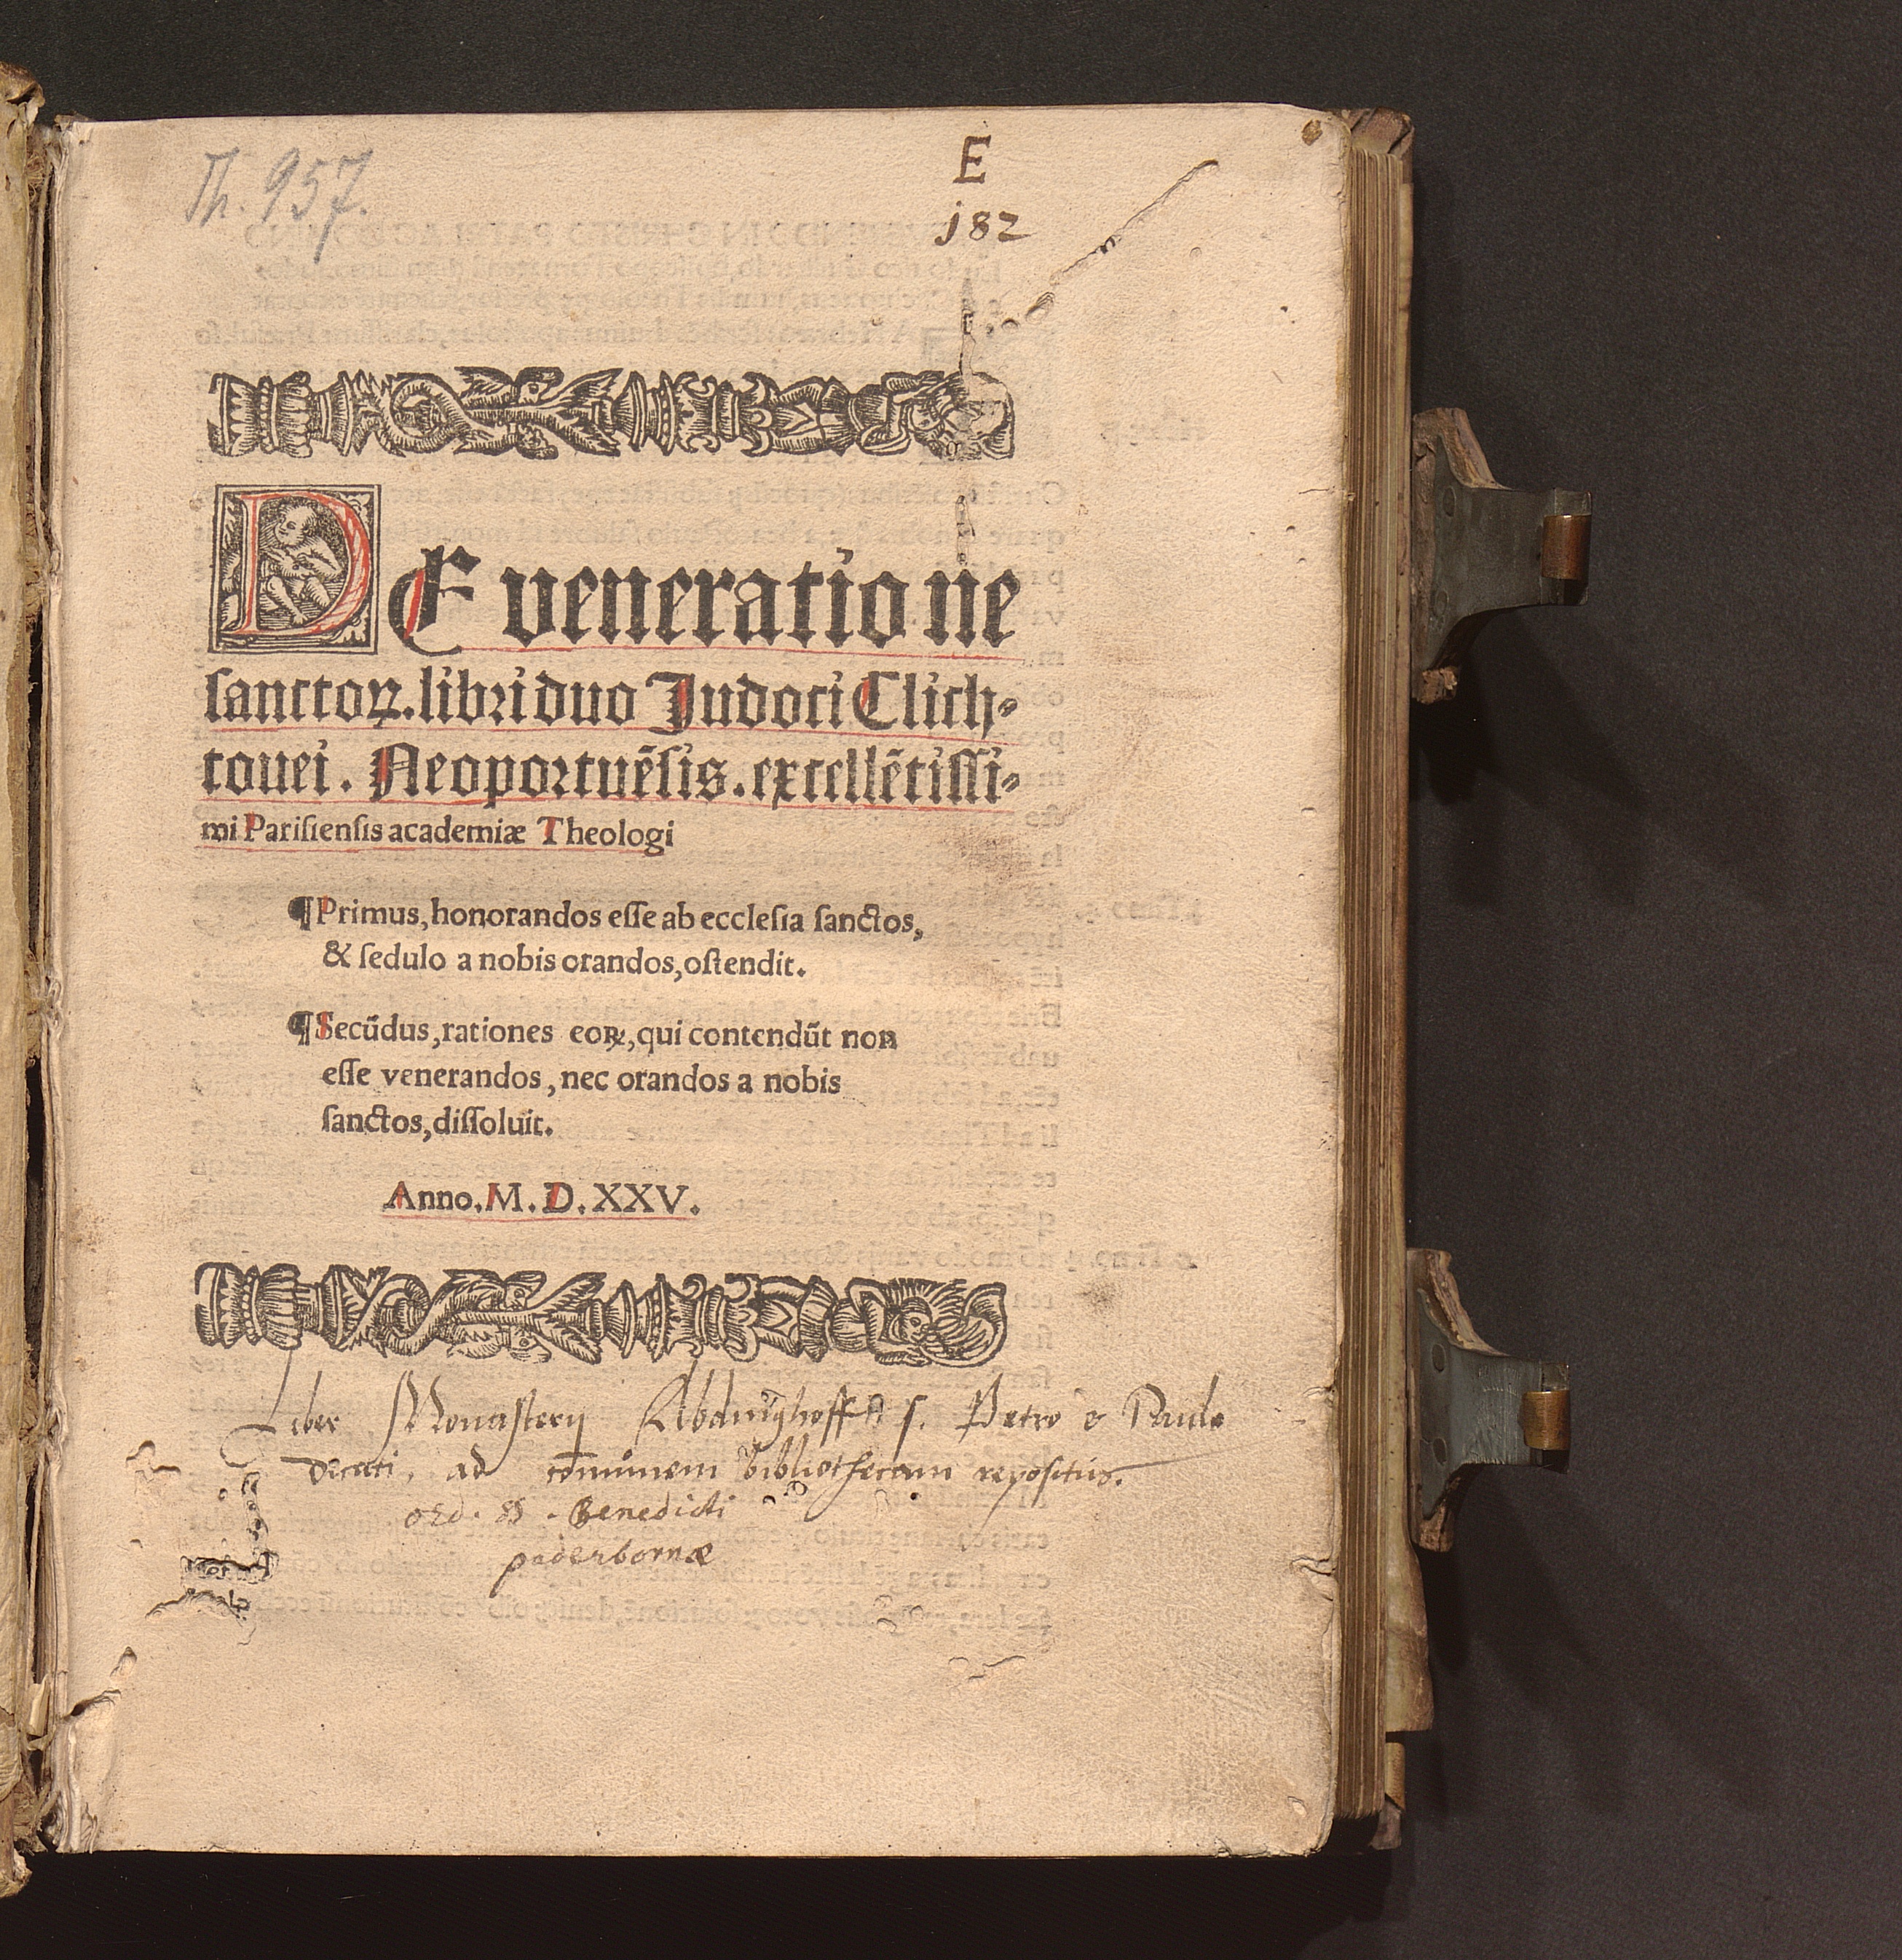 Th. 957.
E
j82
DE veneratione
sanctoꝝ. libri duo Judoci Clich-
touei. Neoportuēsis. excellētissi-
mi Parisiensis academiæ Theologi
¶Primus, honorandos esse ab ecclesia sanctos,
& sedulo a nobis orandos, ostendit.
¶Secūdus, rationes eoꝝ, qui contendūt non
esse venerandos, nec orandos a nobis
sanctos, dissoluit.
Anno. M. D. XXV.
Liber Monasterij Abdinghoff s. Petro & Paulo
dicati, ad cōmunem bibliothecam repositus.
ord. S. Benedicti
paderbornæ